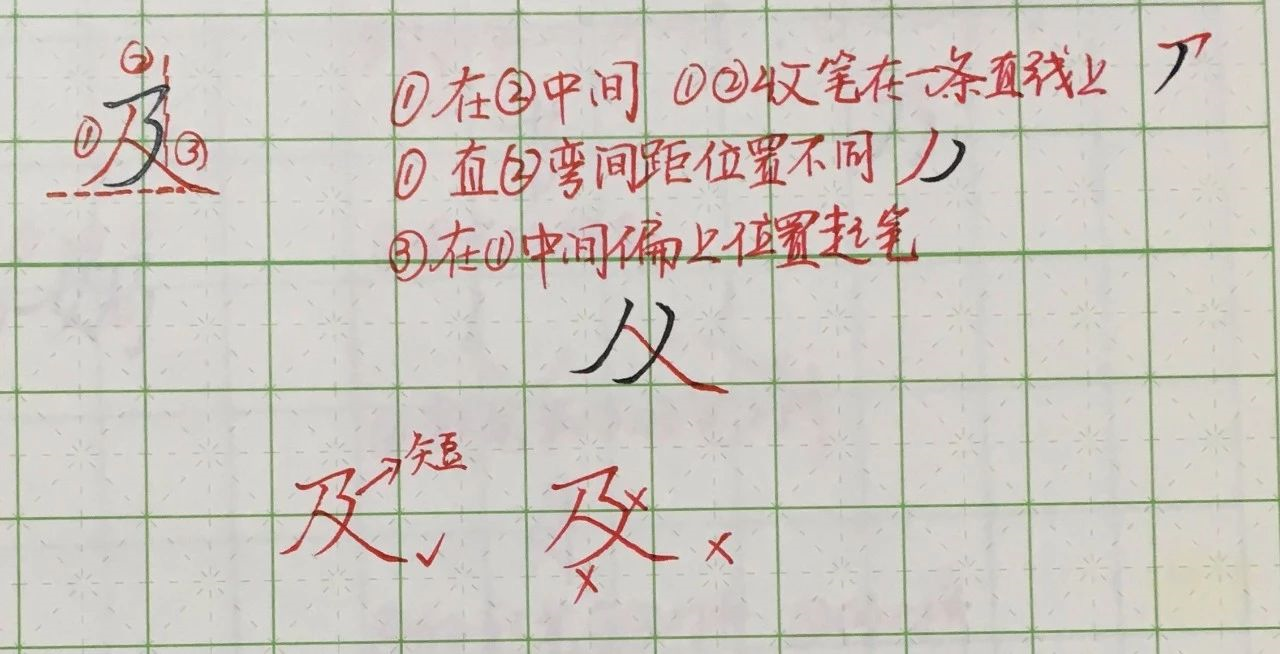 ②
及
①
③
①在②中间 ①②收笔在一条直线上
①直②弯间距位置不同
③在①中间偏上位置起笔
及→短
✓
及
×
×
×